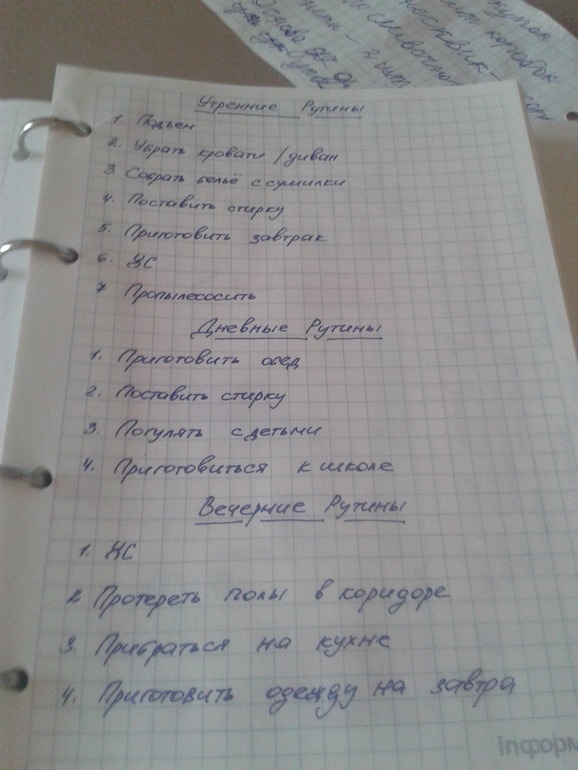 кушак
коробок
Москвик-
сливочно
- 2 шт
Утренние Рутины
1. Подъем
2. Убрать кровати / диван
3 Собрать бельё с сушилки
4. Поставить стирку
5. Приготовить завтрак
6. ЧС
7 Пропылесосить
Дневные Рутины
1. Приготовить обед
2. Поставить стирку
3. Погулять с детьми
4. Приготовиться к школе
Вечерние Рутины
1. ЧС
2 Протереть полы в коридоре
3. Прибраться на кухне
4. Приготовить одежду на завтра
інформ